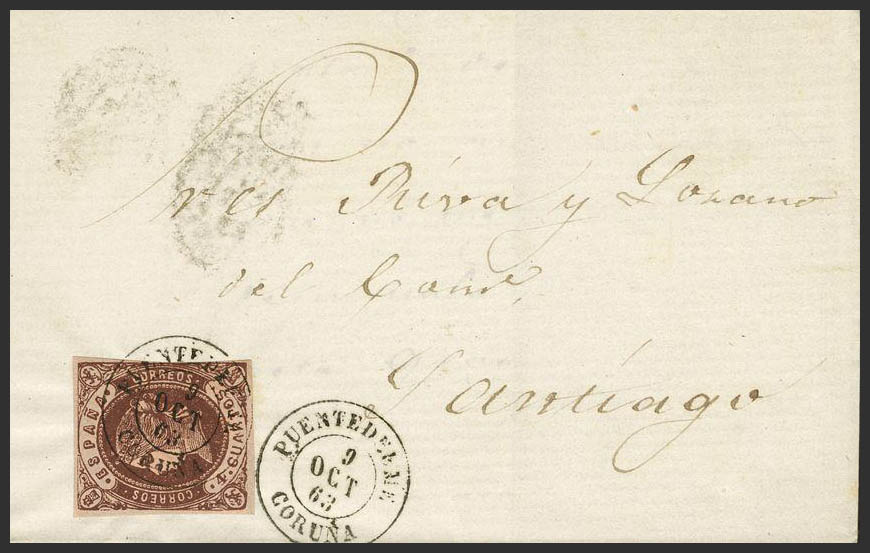 Sres Riva y Lozano
del Comº.
Santiago
CORREOS
ESPAÑA
4 CUARTOS
CORREOS
PUENTEDEUME
9
OCT
63
CORUÑA
PUENTEDEUME
9
OCT
63
CORUÑA